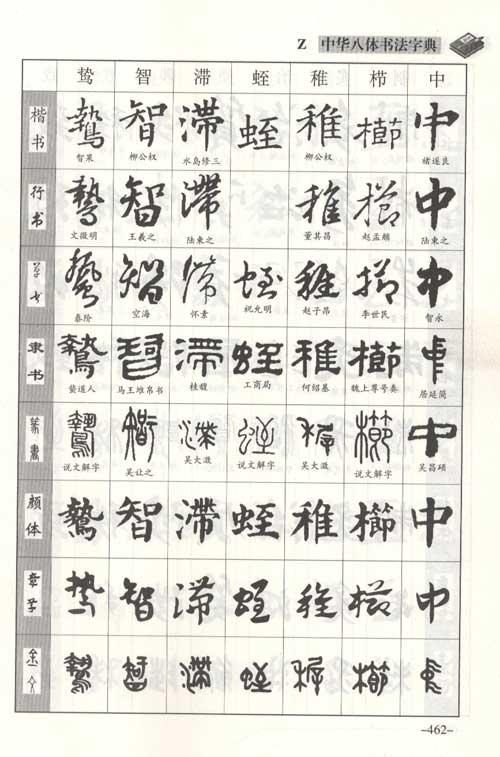 Z 中华八体书法字典
鸷 智 滞 蛭 稚 栉 中
楷书 鷙 智 滯 蛭 稚 櫛 中
智果 柳公权 水岛修三 柳公权 褚遂良
行书 鷙 智 滯 稚 櫛 中
文徵明 王羲之 陆柬之 董其昌 赵孟頫 陆柬之
草书 鷙 智 滯 蛭 稚 櫛 中
春阶 空海 怀素 祝允明 赵子昂 李世民 智永
隶书 鷙 智 滯 蛭 稚 櫛 中
道人 马王堆帛书 桂馥 工商局 何绍基 魏上尊号奏 居延简
篆書 鷙 智 滯 蛭 稚 櫛 中
说文解字 吴让之 吴大澂 说文解字 吴大澂 说文解字 吴昌硕
颜体 鷙 智 滯 蛭 稚 櫛 中
章草 鸷 智 滯 蛭 稚 櫛 中
金文 鷙 智 滯 蛭 稚 櫛 中
-462-